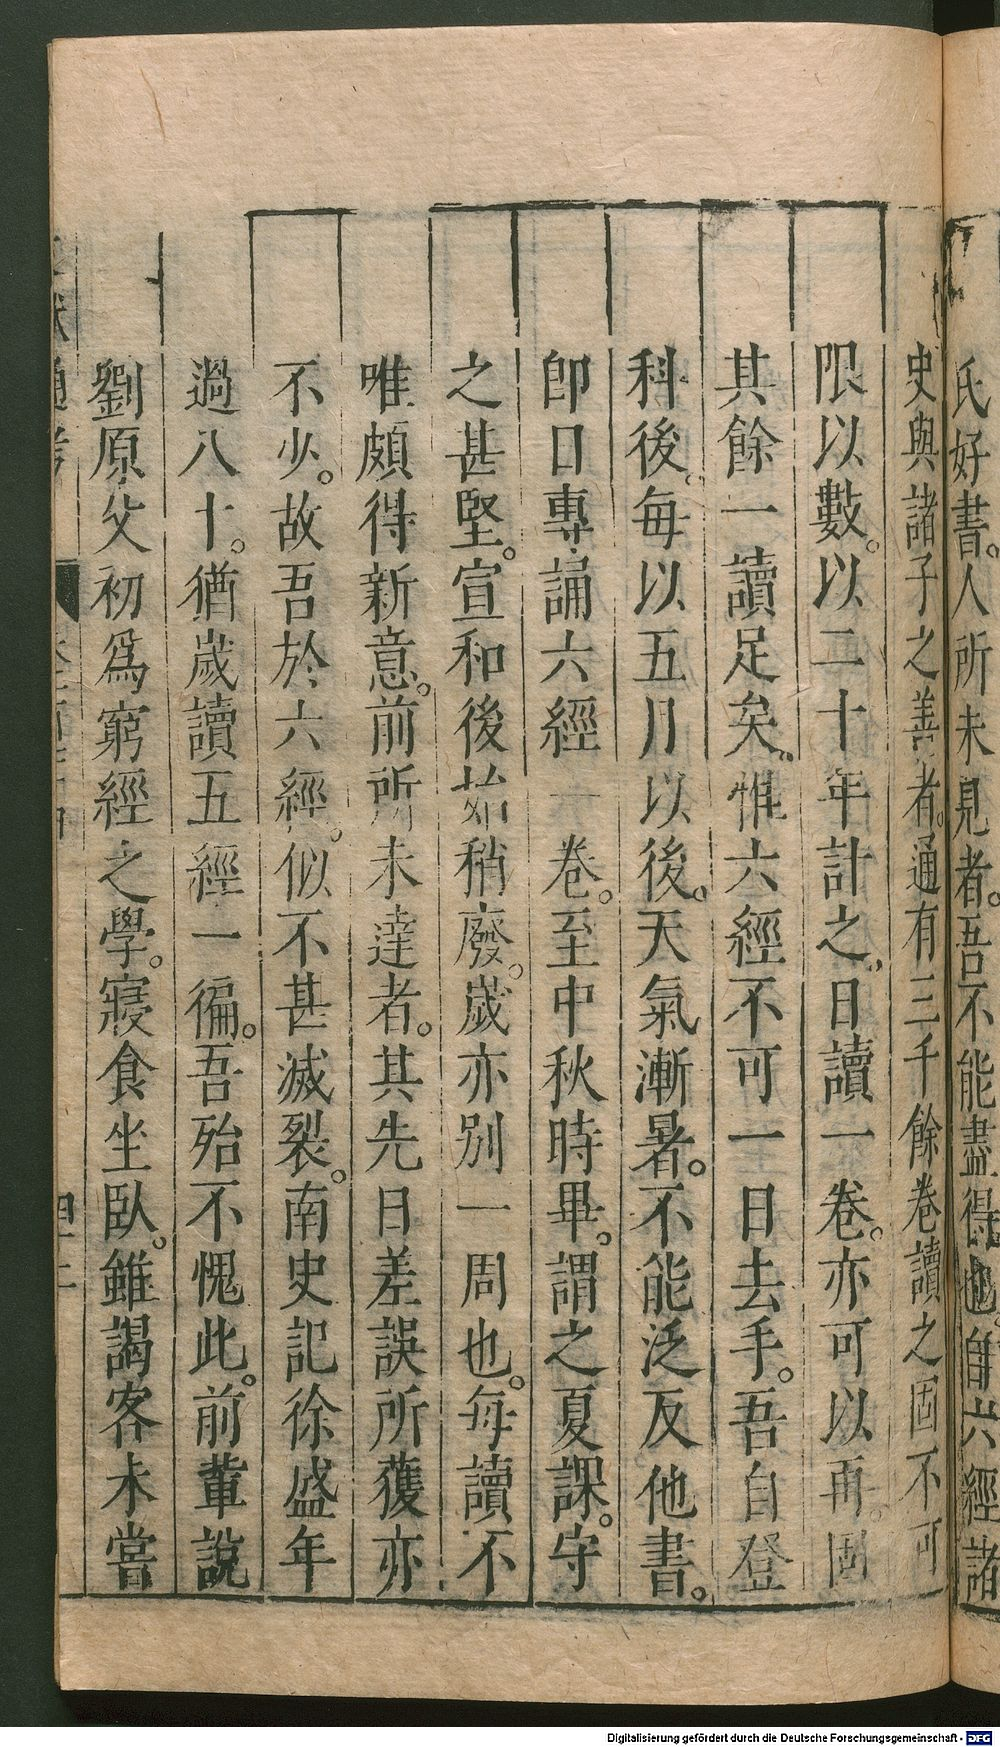 氏好書。人所未見者。吾不能盡得也。自六經諸
史與諸子之善者。通有三千餘卷讀之固不可
限以數。以二十年計之。日讀一卷。亦可以再。固
其餘一讀足矣。惟六經不可一日去手。吾自登
科後。每以五月以後。天氣漸暑。不能泛及他書。
即日專誦六經一卷。至中秋時畢。謂之夏課。守
之甚堅。宣和後始稍廢。歲亦別一周也。每讀不
唯頗得新意。前所未達者。其先日差誤所獲亦
不少。故吾於六經。似不甚滅裂。南史記徐盛年
過八十。猶歲讀五經一徧。吾殆不愧此。前輩說
劉原父初爲窮經之學。寢食坐臥。雖謁客未嘗
獻通考
Digitalisierung gefördert durch die Deutsche Forschungsgemeinschaft - DFG